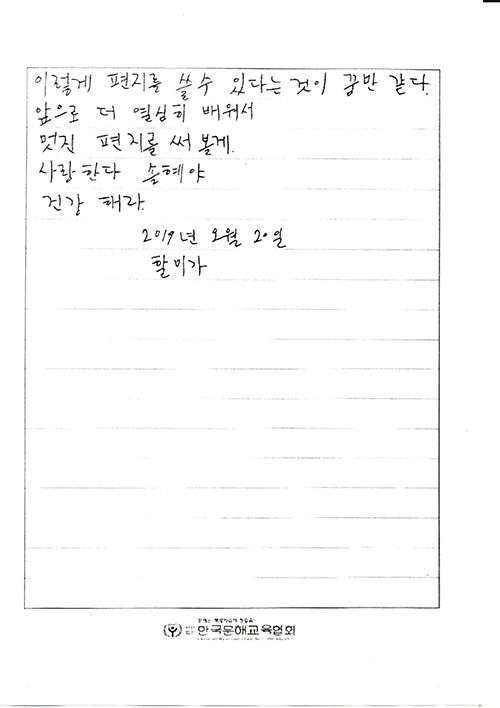 이렇게 편지를 쓸수 있다는 것이 꿈만 같다.
앞으로 더 열심히 배워서
멋진 편지를 써 볼게.
사랑한다 솔혜야
건강 해라.
2019년 오월 20일
할미가
한국문해교육협회